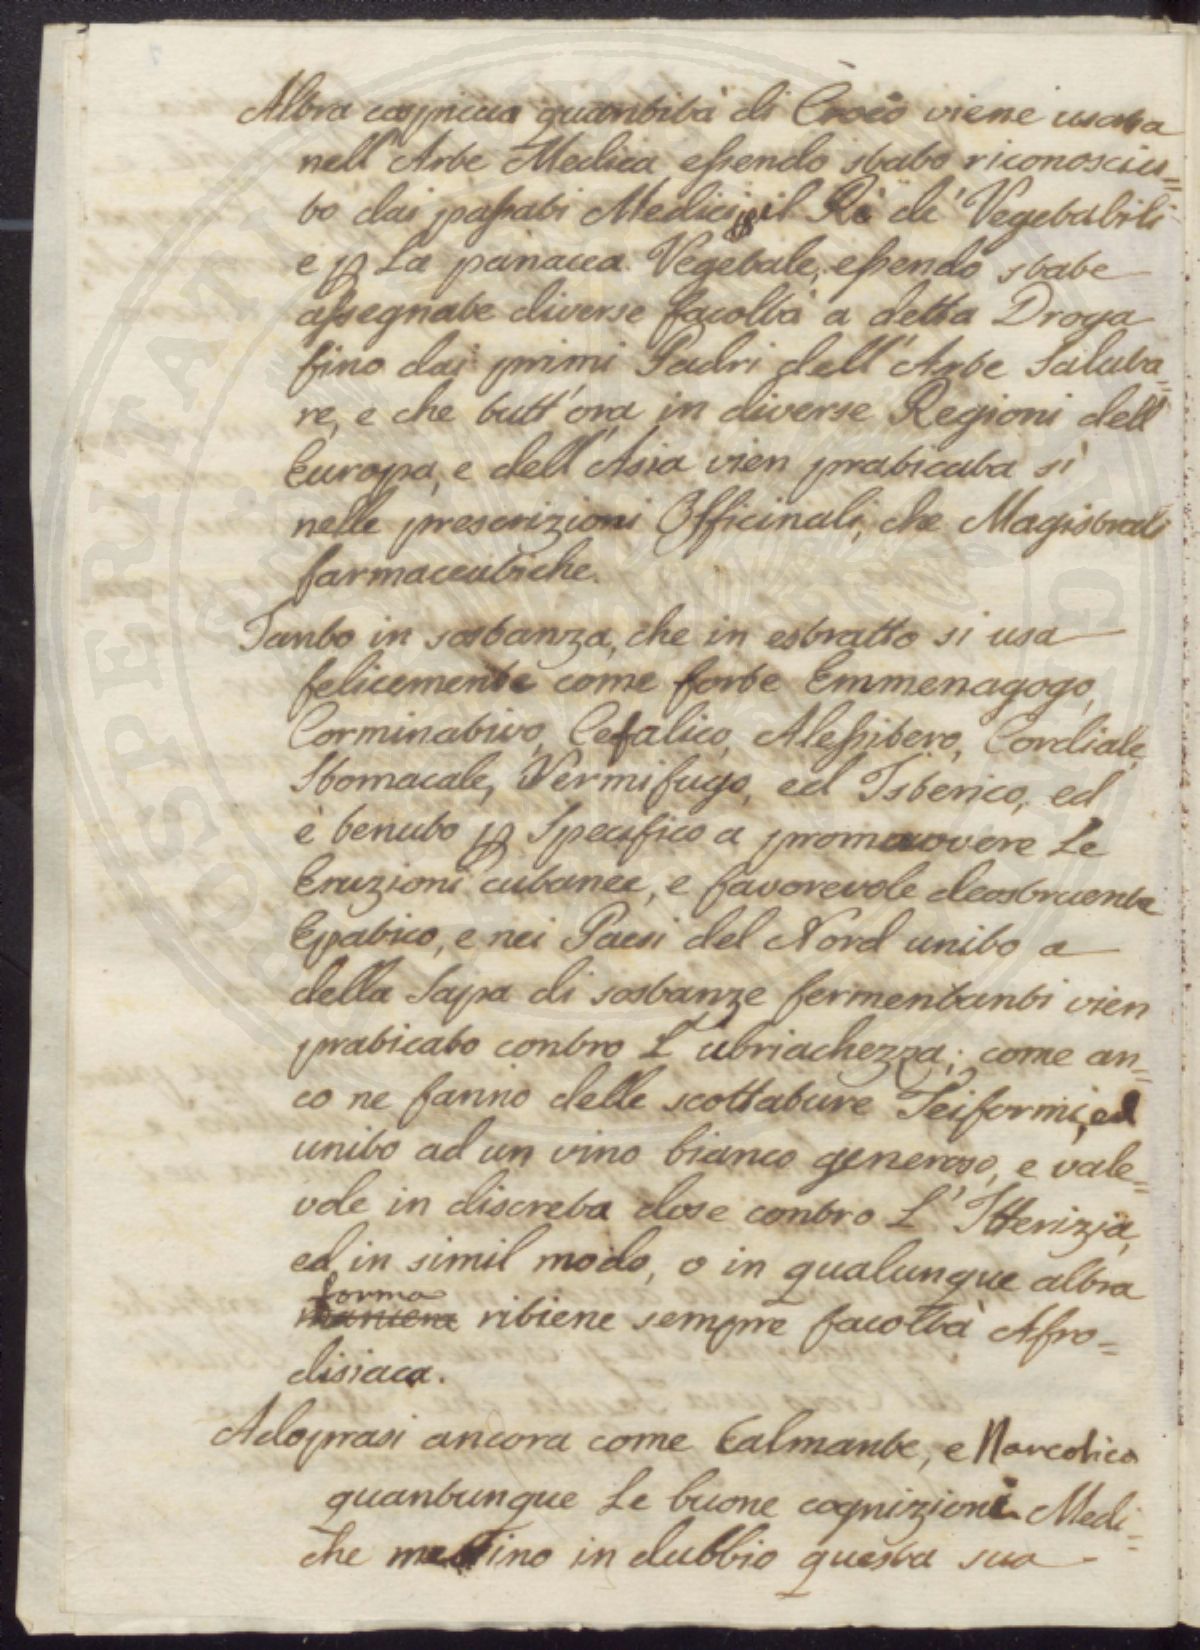 Altra copiccua quantità di Croco viene usata
nell'Arte Medica, essendo stato riconosciu=
to dai passati Medici p il Rè de' Vegetabili
e p La panacea Vegetale, essendo state
assegnate diverse facoltà a detta Droga
fino dai primi Padri dell'Arte Saluta=
re, e che tutt'ora in diverse Regioni dell'
Europa, e dell'Asia vien praticata sì
nelle prescrizioni Officinali, che Magistrali
farmaceutiche.
Tanto in sostanza, che in estratto si usa
felicemente come forte Emmenagogo,
Corminativo, Cefalico, Alessitero, Cordiale,
Stomacale, Vermifugo, ed Isterico, ed
è tenuto p Specifico a promuovere Le
Eruzioni cutanee, e favorevole deostruente
Epatico, e nei Paesi del Nord unito a
della Sapa di sostanze fermentanti vien
praticato contro L'ubriachezza; come an=
co ne fanno delle scottature Teiformi, ed
unito ad un vino bianco generoso, e vale=
vole in discreta dose contro L'Itterizia,
ed in simil modo, o in qualunque altra
forma
maniera ritiene sempre facoltà Afro=
disiaca.
Adoprasi ancora come Calmante, e Narcotico
quantunque Le buone cognizioni Medi=
che mettino in dubbio questa sua
PROSPERITATI